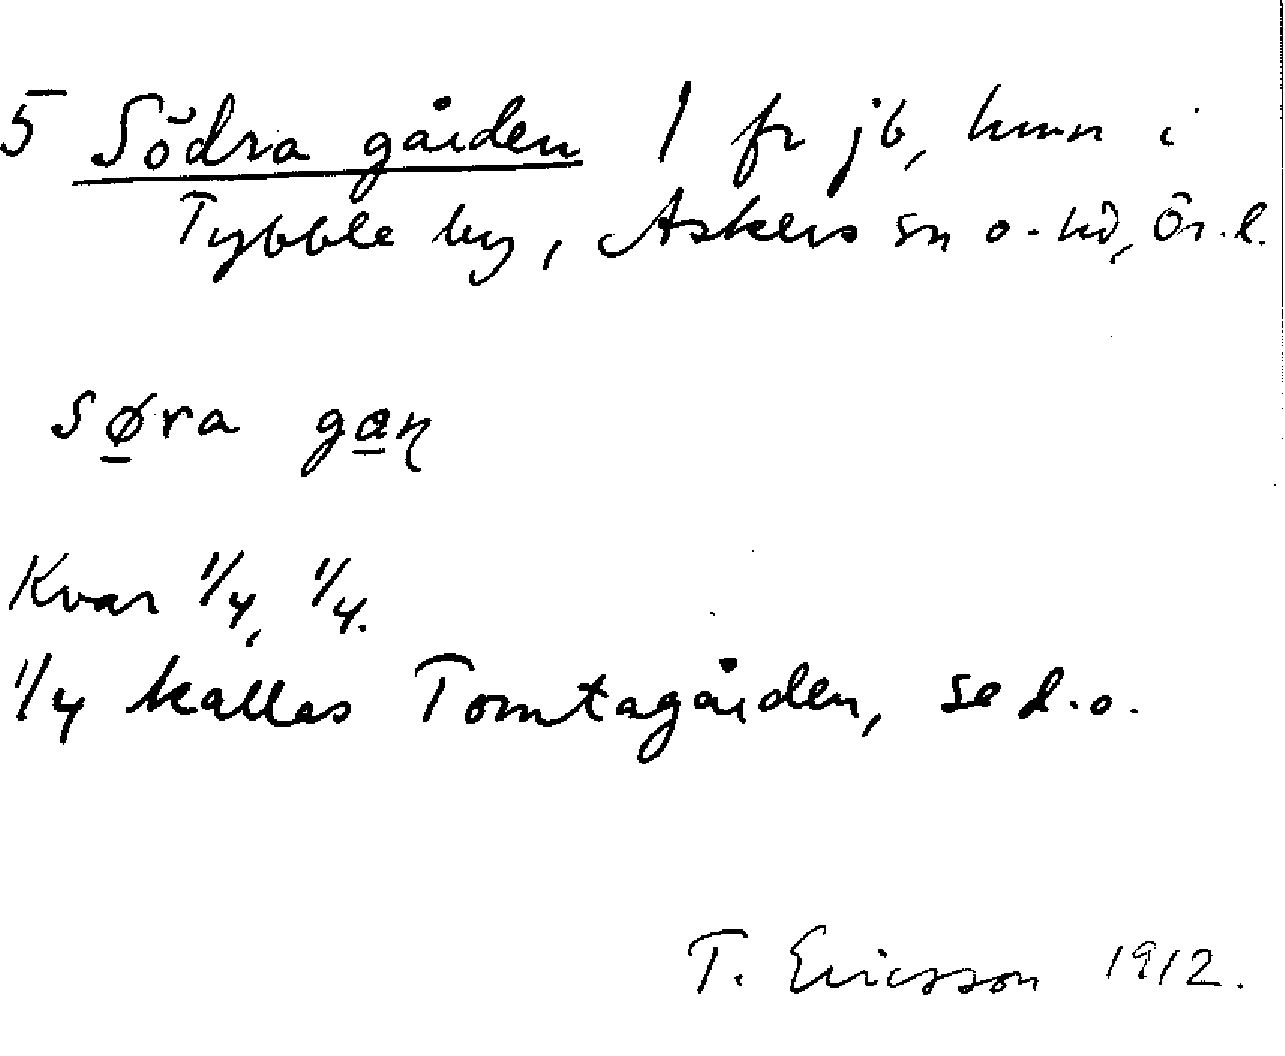 5 Södra gården 1 fr jb, hmn i
Tybble by, Askers sn o. hd, Ör. l.
sø̱ra ga̱ɳ
Kvar 1/4, 1/4.
1/4 kallas Tomtagården, se d.o.
T. Ericsson 1912.